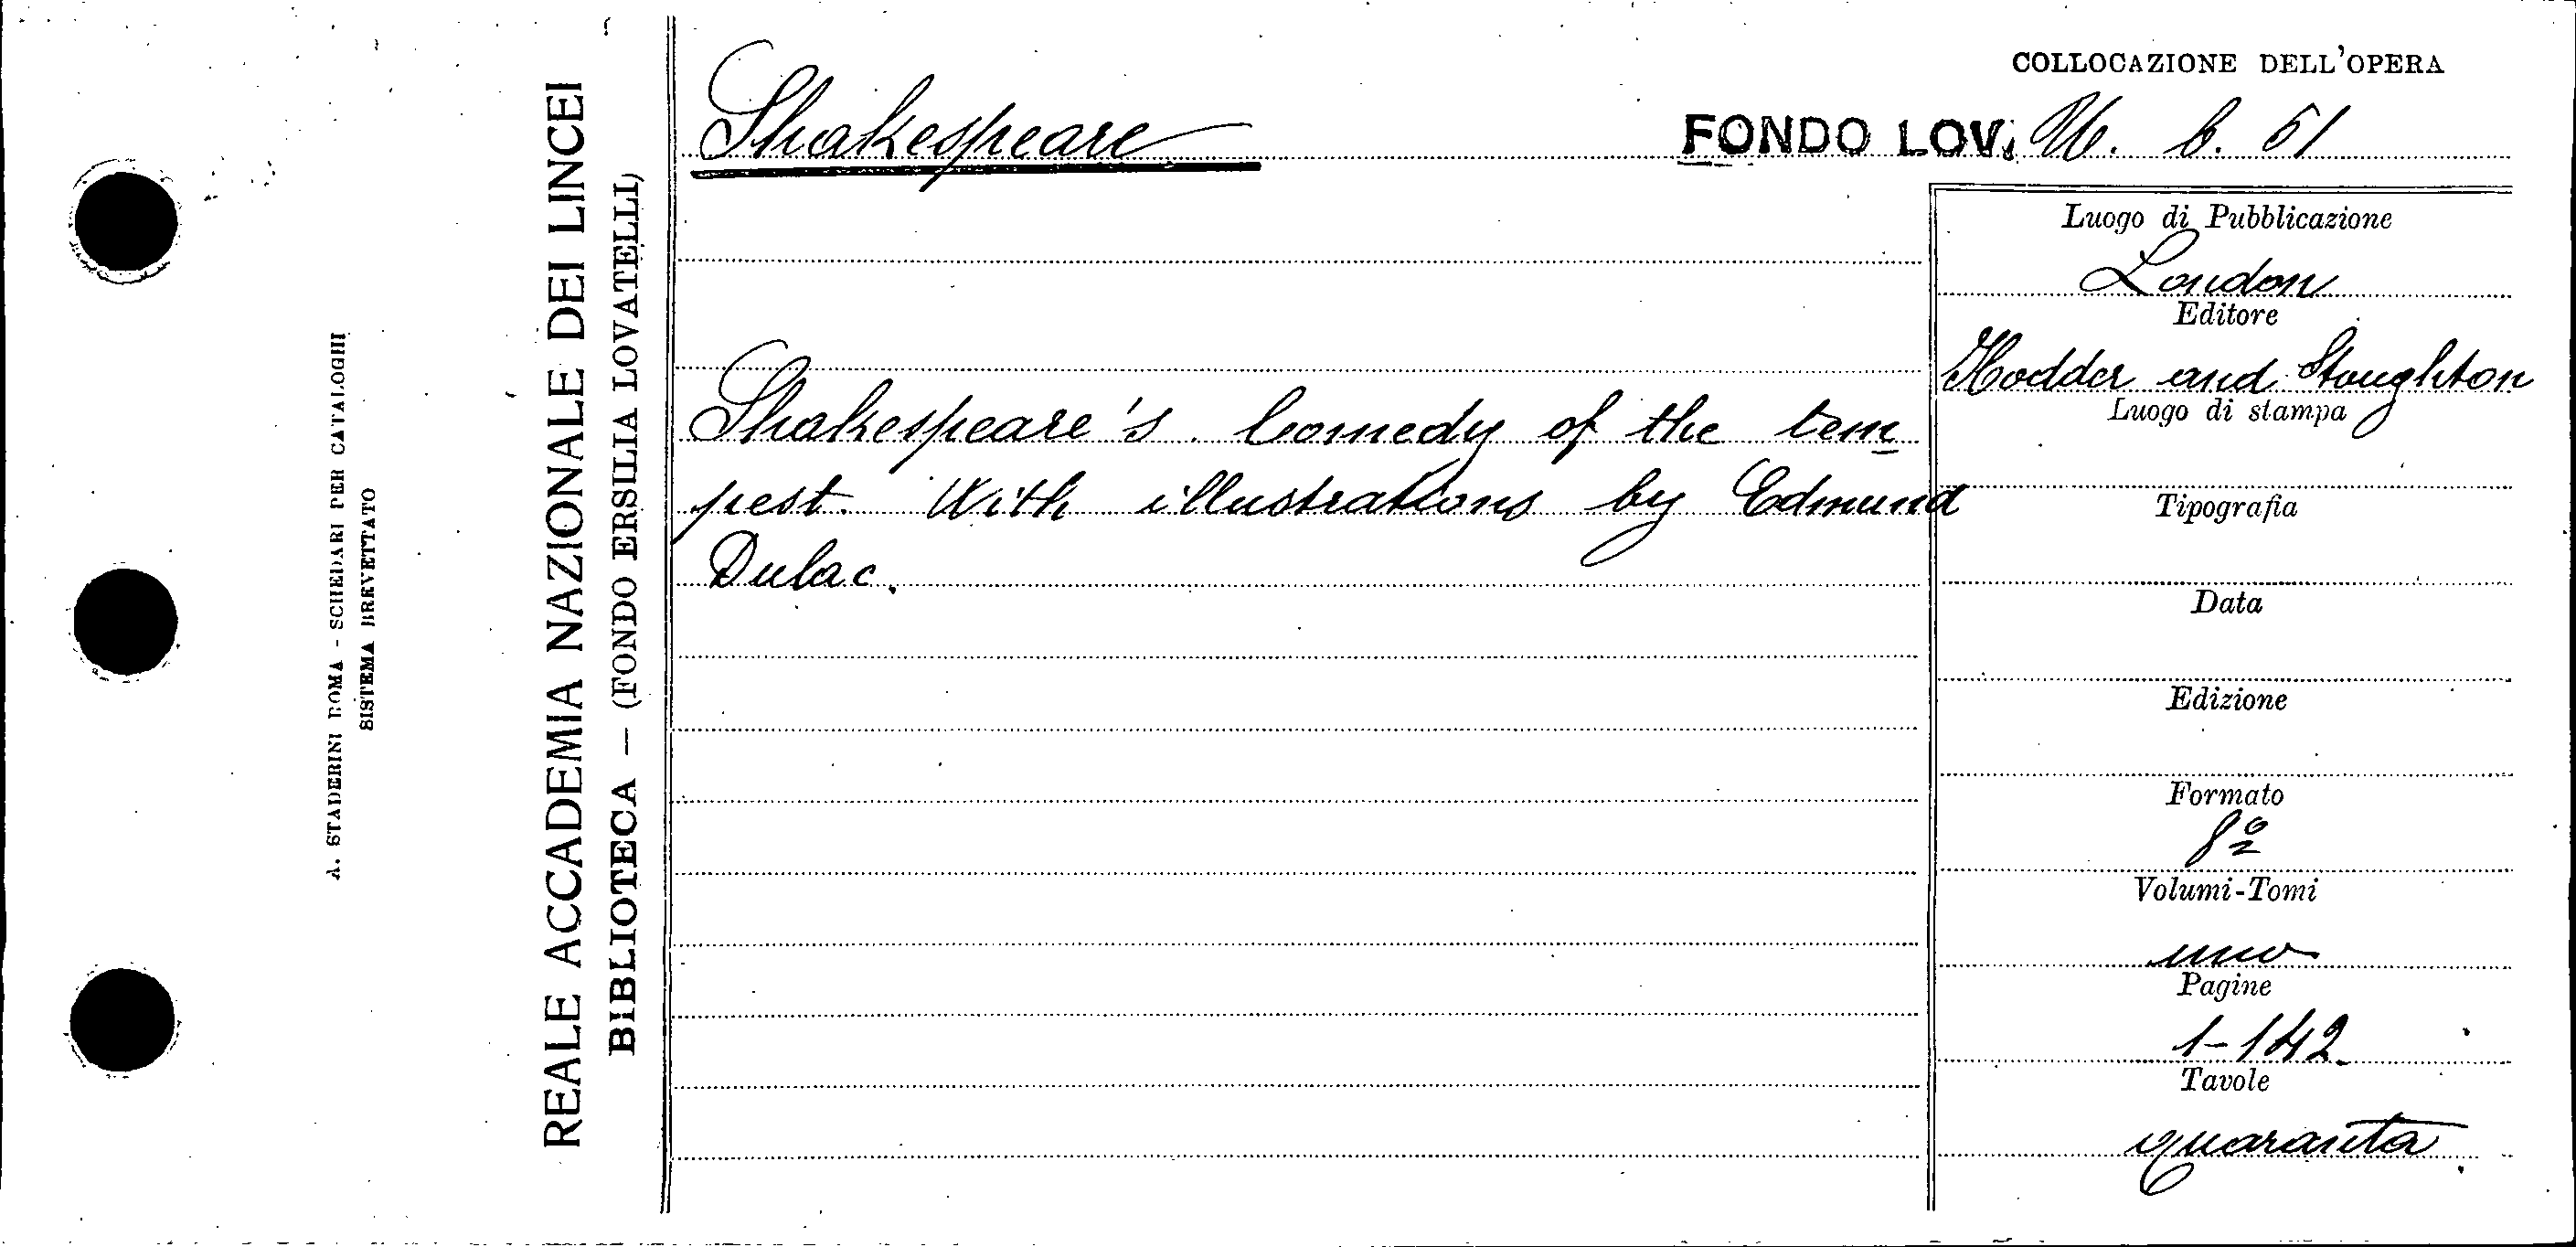 A. STADERINI ROMA - SCHEDARI PER CATALOGHI
SISTEMA BREVETTATO
REALE ACCADEMIA NAZIONALE DEI LINCEI
BIBLIOTECA — (FONDO ERSILIA LOVATELLI)
Shakespeare
COLLOCAZIONE DELL'OPERA
FONDO LOV. b. 51
Shakespeare's Comedy of the tem
pest. With illustrations by Edmund
Dulac.
Luogo di Pubblicazione
London
Editore
Hodder and Stoughton
Luogo di stampa
Tipografia
Data
Edizione
Formato
8º
Volumi-Tomi
uno
Pagine
1-142
Tavole
quaranta